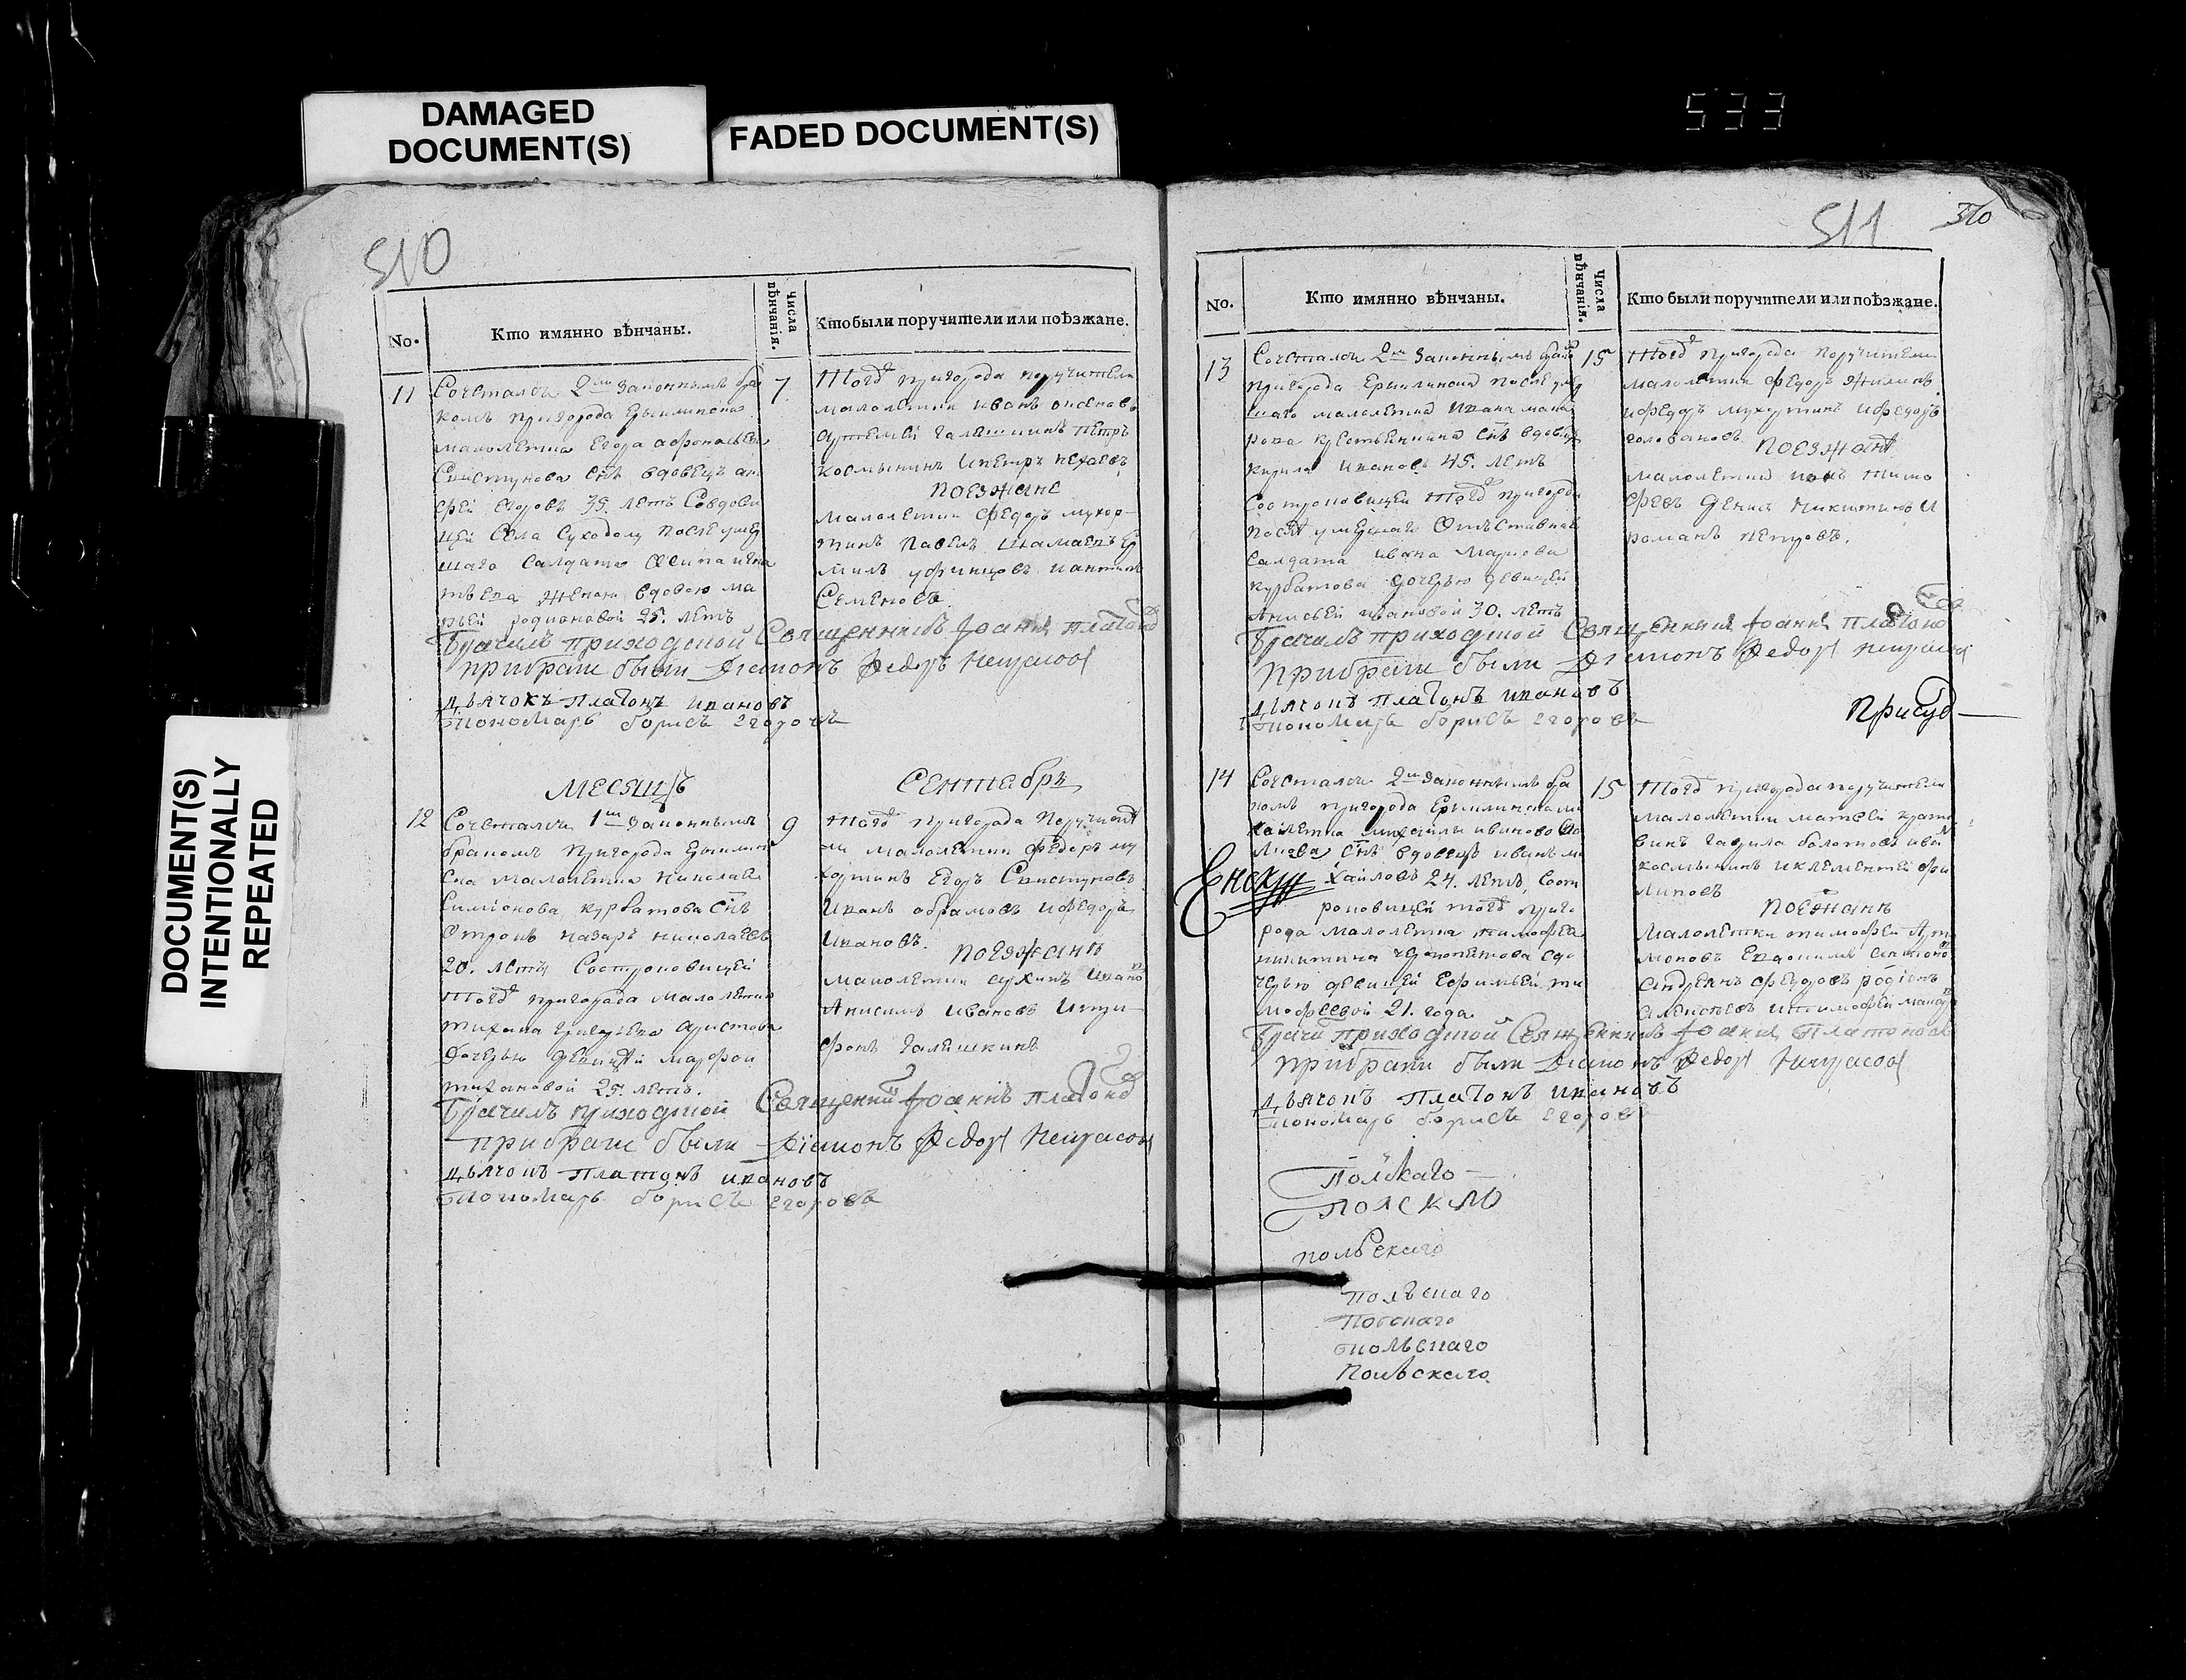 DAMAGED
DOCUMENT(S)
FADED DOCUMENT(S)
DOCUMENT(S)
INTENTIONALLY
REPEATED
533
510
No.
Кто имянно вѣнчаны.
Числа
вѣнчанія.
Кто были поручители или поѣзжане.
11
Сочетался 2мъ законнымъ бра
комъ пригорода Ерыклинска
малолетка Егора
Свистунова снъ вдовецъ ан
фей Егоровъ 35. летъ Совдови
цей Села Суходолу после умер
шаго Салдата Осипа игна
тьева женою вдовою ма
рьей родионовой 25. летъ
7
тогожъ пригорода поручители
малолетки иванъ
Артемей галяшкинъ петръ
космынинъ ипетръ нехаевъ
поезжане
малолетки федоръ мухор
тинъ павелъ шамаевъ Ер
милъ уфинцовъ
Семеновъ
Брачилъ приходской Священникъ Іоаннъ Платоновъ
при браке были Діаконъ Федоръ Некрасовъ
дьячокъ Платонъ ивановъ
пономарь борисъ егоровъ
месяцъ
Сентябрь
12
Сочетался 1мъ законнымъ
бракомъ пригорода Ерыклин
ска малолетка николая
Симіонова курбатова снъ
отрокъ назаръ николаевъ
20. летъ Состроковицей
тогожъ пригорода малолетка
тихана григорьева аристова
дочерью девицей марфой
тихановой 25. летъ.
9
тогожъ пригорода поручите
ли малолетки федоръ му
хортинъ Егоръ Свистуновъ
иванъ абрамовъ ифедоръ
ивановъ.
поезжанъ
малолетки
Анисимъ ивановъ итри
фонъ галяшкинъ
Брачилъ приходской Священникъ Іоаннъ Платоновъ
при браке были Діаконъ Федоръ Некрасовъ
дьячокъ Платонъ ивановъ
пономарь борисъ егоровъ
511
370
No.
Кто имянно вѣнчаны.
Числа
вѣнчанія.
Кто были поручители или поѣзжане.
13
Сочетался 2мъ законнымъ
пригорода Ерыклинска после умер
шаго малолетка ивана мака
рова крестьянина снъ вдовецъ
кирила ивановъ 45. летъ
Состроковицей тогожъ пригорода
после умершаго Отъставнаго
Салдата ивана Маркова
курбатова дочерью девицей
Анисьей ивановой 30. летъ
15
тогожъ пригорода поручители
малолетки федоръ жилинъ
ифедоръ мухортинъ ифедоръ
головановъ
поезжанъ
малолетки тимо
феевъ денисъ никитинъ и
романъ петровъ.
Брачилъ приходской Священникъ Іоаннъ Платоновъ
при браке были Діаконъ Федоръ Некрасовъ
дьячокъ Платонъ ивановъ
пономарь борисъ егоровъ
присуд
14
Сочетался 2мъ законнымъ бра
комъ пригорода Ерыклинска ма
лолетка михаила иванова
снъ вдовецъ иванъ ми
хайловъ 24. летъ, Сост
роковицей тогожъ приго
рода малолетка тимофея
никитина до
черью девицей Ефимьей ти
мофеевой 21. года.
15
тогожъ пригорода поручители
малолетки матвей
винъ гаврила болотовъ ива
космынинъ иклементей фи
липовъ
поезжанъ
малолетки тимофей Арта
моновъ Евдокимъ
андреянъ федоровъ родіонъ
алексеевъ итимофей
Брачилъ приходской Священникъ Іоаннъ Платоновъ
при браке были Діаконъ Федоръ Некрасовъ
дьячокъ Платонъ ивановъ
пономарь борисъ егоровъ
Полскаго
польскаго
полъскаго
Поскаго
польскаго
Польскаго